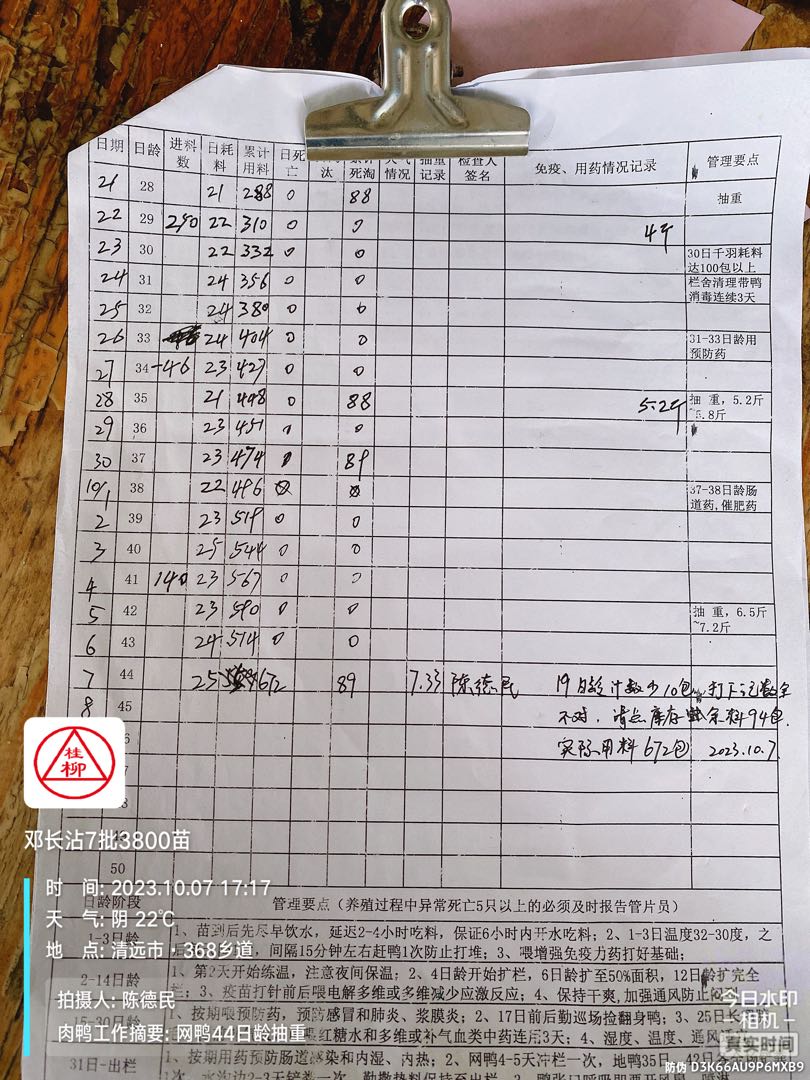 日期 日龄 进料数 日耗料 累计用料 日死亡 汰 死淘 情况 抽重记录 检查人签名 免疫、用药情况记录 管理要点
21 28 21 288 0 88 抽重
22 29 290 22 310 0 0 4斤
23 30 22 332 0 0 30日千羽耗料达100包以上
24 31 24 356 0 0 栏舍清理带鸭消毒连续3天
25 32 24 380 0 0
26 33 24 404 0 0 31-33日龄用预防药
27 34 -46 23 427 0 0
28 35 21 448 0 88 5.2斤 抽 重，5.2斤~5.8斤
29 36 23 451 0
30 37 23 474 89
10/1 38 22 496 37-38日龄肠道药,催肥药
2 39 23 519 0 0
3 40 25 544 0 0
4 41 140 23 567 0 0
5 42 23 590 0 0 抽 重，6.5斤~7.2斤
6 43 24 514 0 0
7 44 25 672 89 7.33 陈德民 19日龄计数少10包
8 45 不对，清点库存 余料94包.
实际用料672包 2023.10.7
50
桂柳
邓长沾7批3800苗
时 间: 2023.10.07 17:17
天 气: 阴 22℃
地 点: 清远市，368乡道
拍摄人: 陈德民
肉鸭工作摘要: 网鸭44日龄抽重
日龄阶段 管理要点（养殖过程中异常死亡5只以上的必须及时报告管片员）
1-3日龄 1、苗到后先尽早饮水，延迟2-4小时吃料，保证6小时内开水吃料；2、1-3日温度32-30度，之
间隔15分钟左右赶鸭1次防止打堆；3、喂增强免疫力药打好基础；
2-14日龄 1、第2天开始练温，注意夜间保温；2、4日龄开始扩栏，6日龄扩至50%面积，12日龄扩完全
栏；3、疫苗打针前后喂电解多维或多维减少应激反应；4、保持干爽,加强通风防止闷
15-30日龄 1、按期喂预防药，预防感冒和肺炎、浆膜炎；2、17日前后勤巡场捡翻身鸭；3、25日
红糖水和多维或补气血类中药连用3天；4、湿度、温度、通风
31日-出栏 1、按期用药预防肠道感染和内湿、内热；2、网鸭4-5天冲栏一次，地鸭35日
今日水印
相机
真实时间
防伪 D3K66AU9P6MXB9